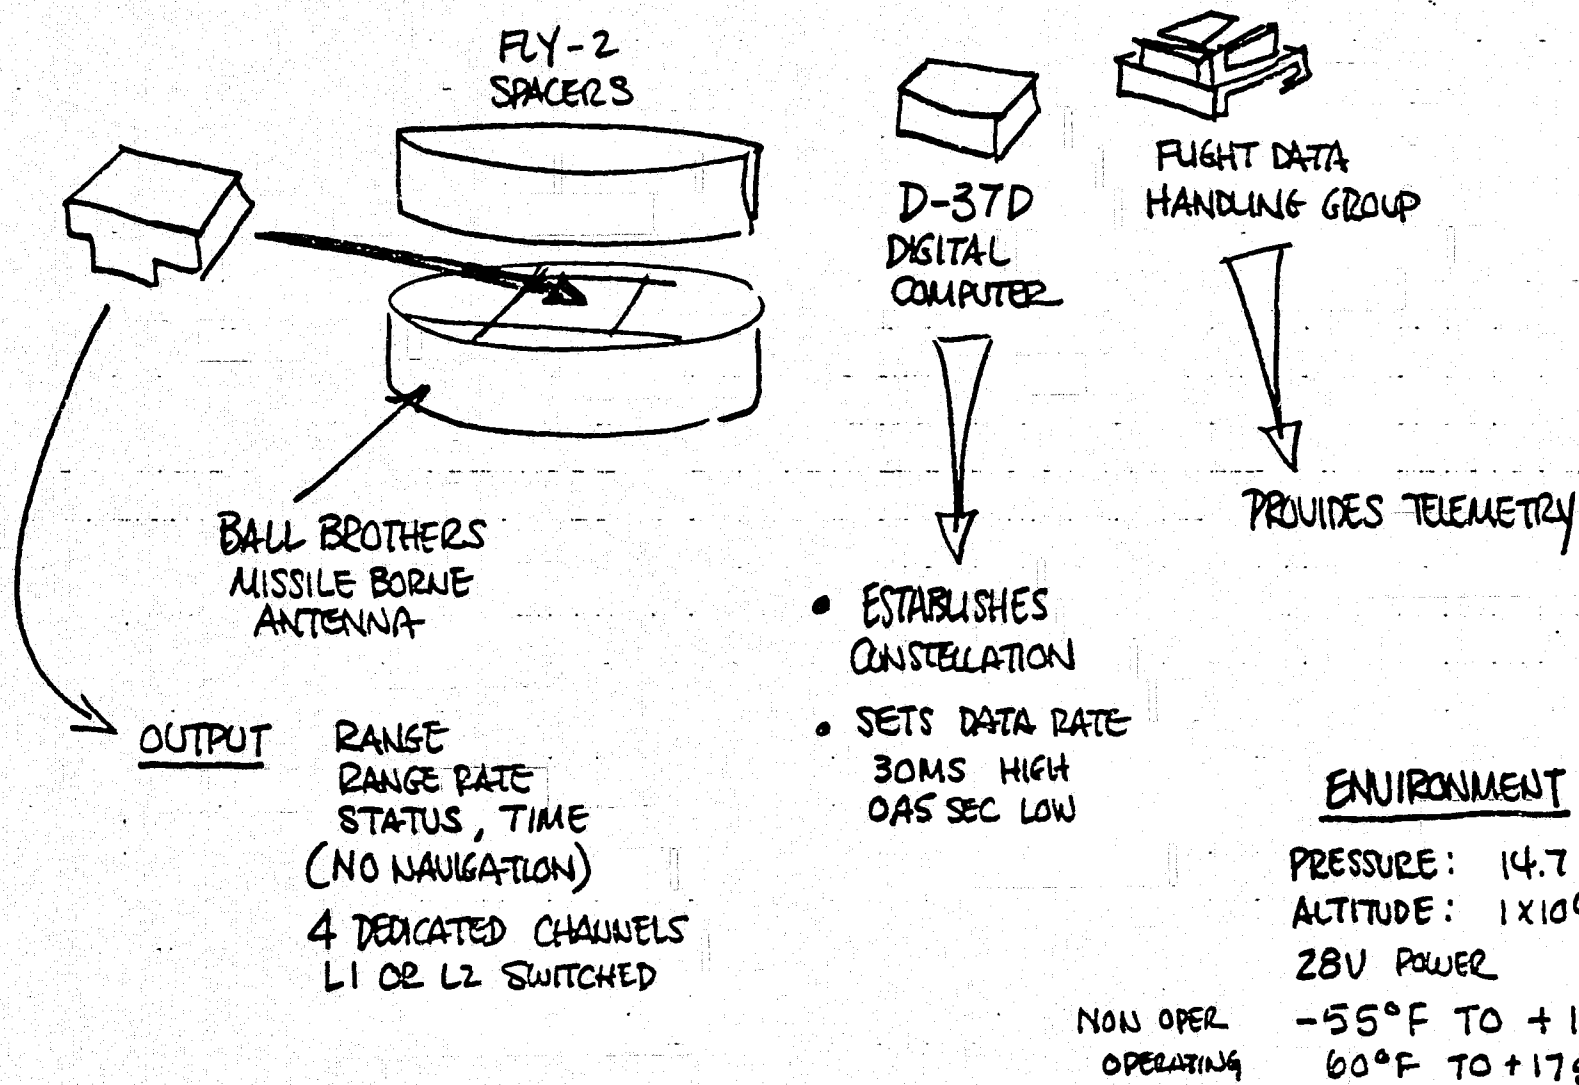 FLY-2
SPACERS
D-37D
DIGITAL
COMPUTER
FLIGHT DATA
HANDLING GROUP
BALL BROTHERS
MISSILE BORNE
ANTENNA
PROVIDES TELEMETRY
• ESTABLISHES
CONSTELLATION
• SETS DATA RATE
30MS HIGH
0.45 SEC LOW
OUTPUT RANGE
RANGE RATE
STATUS, TIME
(NO NAVIGATION)
4 DEDICATED CHANNELS
L1 OR L2 SWITCHED
ENVIRONMENT
PRESSURE: 14.7
ALTITUDE:
28V POWER
NON OPER -55°F TO +
OPERATING 60°F TO